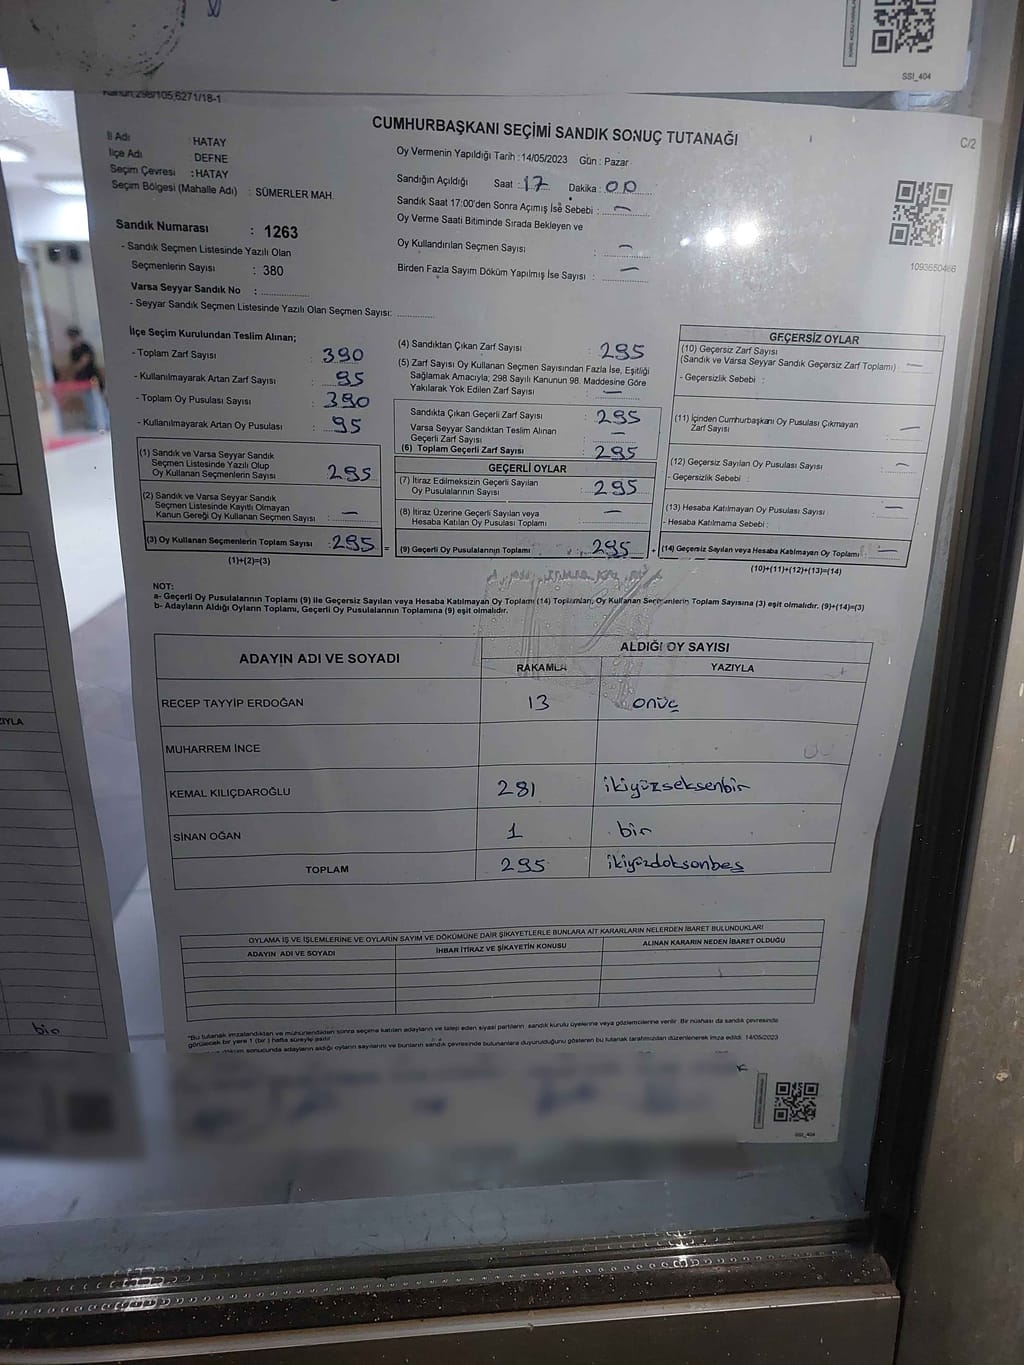 SSI_404
Kanun:298/105,6271/18-1
CUMHURBAŞKANI SEÇİMİ SANDIK SONUÇ TUTANAĞI
C/2
İl Adı : HATAY
İlçe Adı : DEFNE
Seçim Çevresi : HATAY
Seçim Bölgesi (Mahalle Adı) : SÜMERLER MAH.
Sandık Numarası : 1263
- Sandık Seçmen Listesinde Yazılı Olan
Seçmenlerin Sayısı : 380
Varsa Seyyar Sandık No :
- Seyyar Sandık Seçmen Listesinde Yazılı Olan Seçmen Sayısı:
Oy Vermenin Yapıldığı Tarih : 14/05/2023 Gün : Pazar
Sandığın Açıldığı Saat : 17 Dakika : 00
Sandık Saat 17:00'den Sonra Açımış İse Sebebi : —
Oy Verme Saati Bitiminde Sırada Bekleyen ve
Oy Kullandırılan Seçmen Sayısı : —
Birden Fazla Sayım Döküm Yapılmış İse Sayısı : —
1093650466
İlçe Seçim Kurulundan Teslim Alınan;
- Toplam Zarf Sayısı : 390
- Kullanılmayarak Artan Zarf Sayısı : 95
- Toplam Oy Pusulası Sayısı : 390
- Kullanılmayarak Artan Oy Pusulası : 95
(1) Sandık ve Varsa Seyyar Sandık
Seçmen Listesinde Yazılı Olup
Oy Kullanan Seçmenlerin Sayısı : 295
(2) Sandık ve Varsa Seyyar Sandık
Seçmen Listesinde Kayıtlı Olmayan
Kanun Gereği Oy Kullanan Seçmen Sayısı : —
(3) Oy Kullanan Seçmenlerin Toplam Sayısı : 295 =
(1)+(2)=(3)
(4) Sandıktan Çıkan Zarf Sayısı : 295
(5) Zarf Sayısı Oy Kullanan Seçmen Sayısından Fazla İse, Eşitliği
Sağlamak Amacıyla; 298 Sayılı Kanunun 98. Maddesine Göre
Yakılarak Yok Edilen Zarf Sayısı : —
Sandıkta Çıkan Geçerli Zarf Sayısı : 295
Varsa Seyyar Sandıktan Teslim Alınan
Geçerli Zarf Sayısı : —
(6) Toplam Geçerli Zarf Sayısı : 295
GEÇERLİ OYLAR
(7) İtiraz Edilmeksizin Geçerli Sayılan
Oy Pusulalarının Sayısı : 295
(8) İtiraz Üzerine Geçerli Sayılan veya
Hesaba Katılan Oy Pusulası Toplamı : —
(9) Geçerli Oy Pusulalarının Toplamı : 295 +
GEÇERSİZ OYLAR
(10) Geçersiz Zarf Sayısı
(Sandık ve Varsa Seyyar Sandık Geçersiz Zarf Toplamı) : —
- Geçersizlik Sebebi :
(11) İçinden Cumhurbaşkanı Oy Pusulası Çıkmayan
Zarf Sayısı : —
(12) Geçersiz Sayılan Oy Pusulası Sayısı : —
- Geçersizlik Sebebi :
(13) Hesaba Katılmayan Oy Pusulası Sayısı : —
- Hesaba Katılmama Sebebi :
(14) Geçersiz Sayılan veya Hesaba Katılmayan Oy Toplamı : —
(10)+(11)+(12)+(13)=(14)
NOT:
a- Geçerli Oy Pusulalarının Toplamı (9) ile Geçersiz Sayılan veya Hesaba Katılmayan Oy Toplamı (14) Toplamları, Oy Kullanan Seçmenlerin Toplam Sayısına (3) eşit olmalıdır. (9)+(14)=(3)
b- Adayların Aldığı Oyların Toplamı, Geçerli Oy Pusulalarının Toplamına (9) eşit olmalıdır.
ADAYIN ADI VE SOYADI ALDIĞI OY SAYISI
RAKAMLA YAZIYLA
RECEP TAYYİP ERDOĞAN 13 onüç
MUHARREM İNCE
KEMAL KILIÇDAROĞLU 281 ikiyüzseksenbir
SİNAN OĞAN 1 bir
TOPLAM 295 ikiyüzdoksonbeş
OYLAMA İŞ VE İŞLEMLERİNE VE OYLARIN SAYIM VE DÖKÜMÜNE DAİR ŞİKAYETLERLE BUNLARA AİT KARARLARIN NELERDEN İBARET BULUNDUKLARI
ADAYIN ADI VE SOYADI İHBAR İTİRAZ VE ŞİKAYETİN KONUSU ALINAN KARARIN NEDEN İBARET OLDUĞU
*Bu tutanak imzalandıktan ve mühürlendikten sonra seçime katılan adayların ve talep eden siyasi partilerin sandık kurulu üyelerine veya gözlemcilerine verilir. Bir nüshası da sandık çevresinde
görülecek bir yere 1 (bir) hafta süreyle asılır.
döküm sonucunda adayların aldığı oyların sayılarını ve bunların sandık çevresinde bulunanlara duyurulduğunu gösteren bu tutanak tarafımızdan düzenlenerek imza edildi. 14/05/2023
SSI_404
YLA
bir